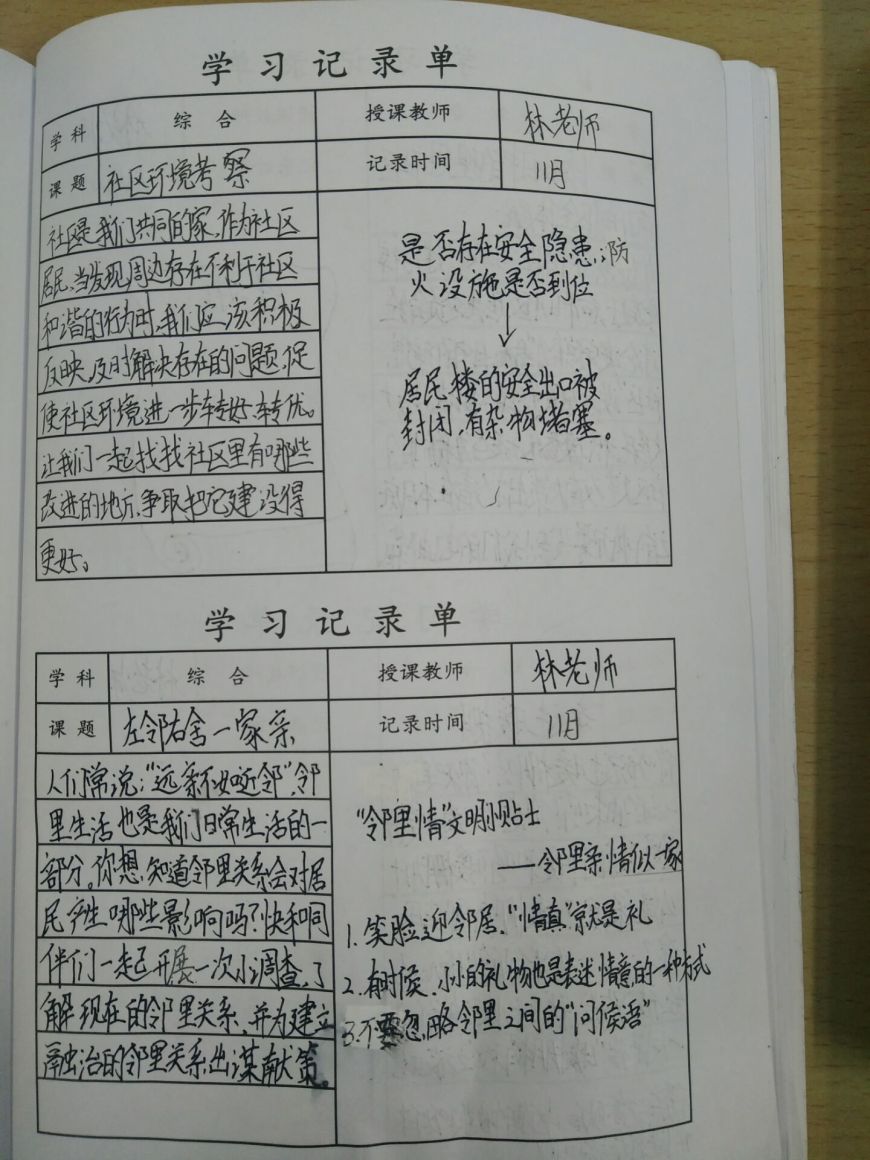 学习记录单
学科 综合 授课教师 林老师
课题 社区环境考察 记录时间 11月
社区是我们共同的家,作为社区
居民,当发现周边存在不利于社区
和谐的行为时,我们应该积极
反映,及时解决存在的问题,促
使社区环境进一步转好、转优。
让我们一起找找社区里有哪些
改进的地方,争取把它建设得
更好。
是否存在安全隐患;防
火设施是否到位
↓
居民楼的安全出口被
封闭,有杂物堵塞。
学习记录单
学科 综合 授课教师 林老师
课题 左邻右舍一家亲 记录时间 11月
人们常说:“远亲不如近邻”,邻
里生活也是我们日常生活的一
部分。你想知道邻里关系会对居
民产生哪些影响吗?快和同
伴们一起开展一次小调查,了
解现在的邻里关系,并为建立
融治的邻里关系出谋献策。
“邻里情”文明小贴士
——邻里亲情似一家
1.笑脸迎邻居,“情真”就是礼
2.有时候,小小的礼物也是表述情意的一种方式
3.不要忽略邻里之间的“问候语”